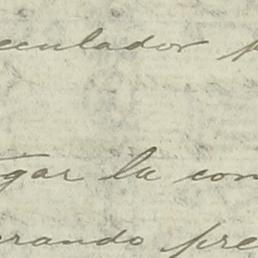 eculador p
gar la con
rando pre